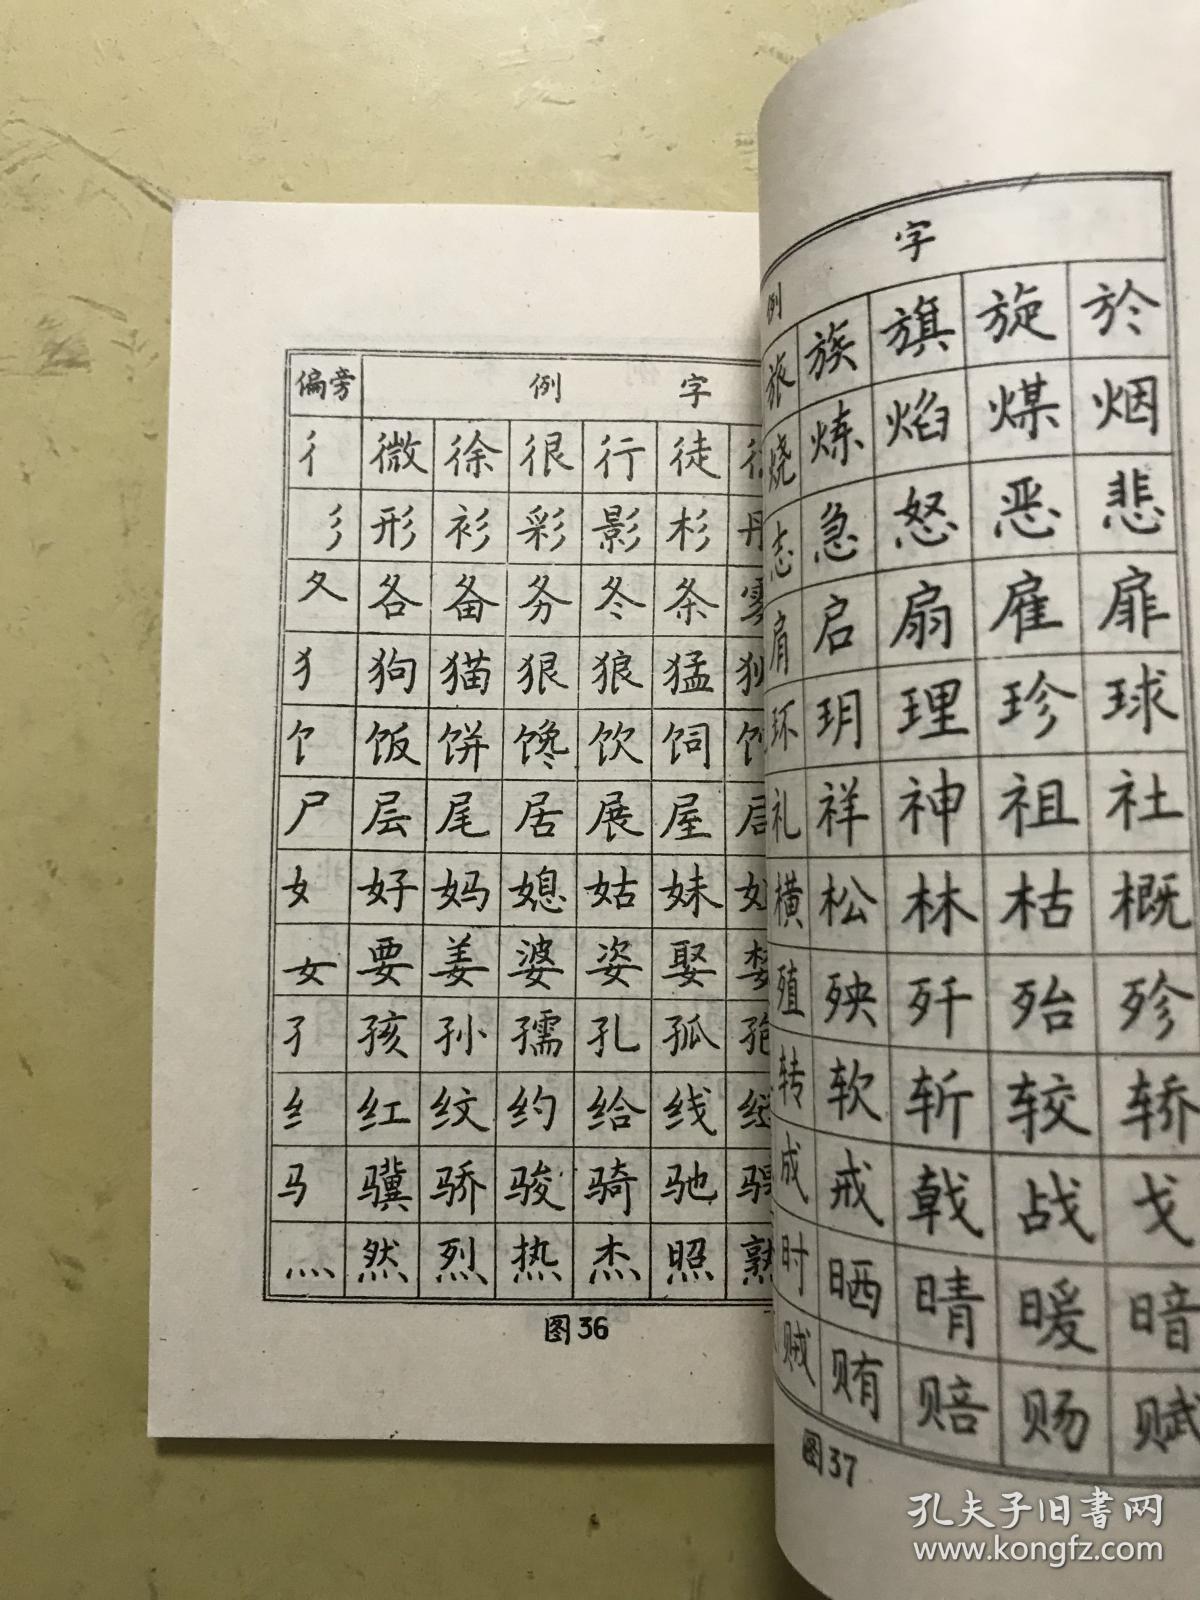 偏旁 例 字
彳 微 徐 很 行 徒
彡 形 衫 彩 影 杉
夂 各 备 务 冬 条
犭 狗 猫 狠 狼 猛
饣 饭 饼 馋 饮 饲
尸 层 尾 居 展 屋
女 好 妈 媳 姑 妹
女 要 姜 婆 姿 娶
孑 孩 孙 孺 孔 孤
纟 红 纹 约 给 线
马 骥 骄 骏 骑 驰
灬 然 烈 热 杰 照 熟
图36
例 字
旅 族 旗 旋 於
烧 炼 焰 煤 烟
志 急 怒 恶 悲
肩 启 扇 雇 扉
环 玥 理 珍 球
礼 祥 神 祖 社
横 松 林 枯 概
殖 殃 歼 殆 殄
转 软 斩 较 轿
成 戒 戟 战 戈
时 晒 晴 暖 暗
贼 贿 赔 赐 赋
图37
孔夫子旧书网
www.kongfz.com